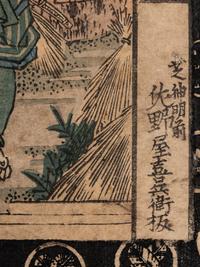 芝神明前
佐野屋喜兵衛板